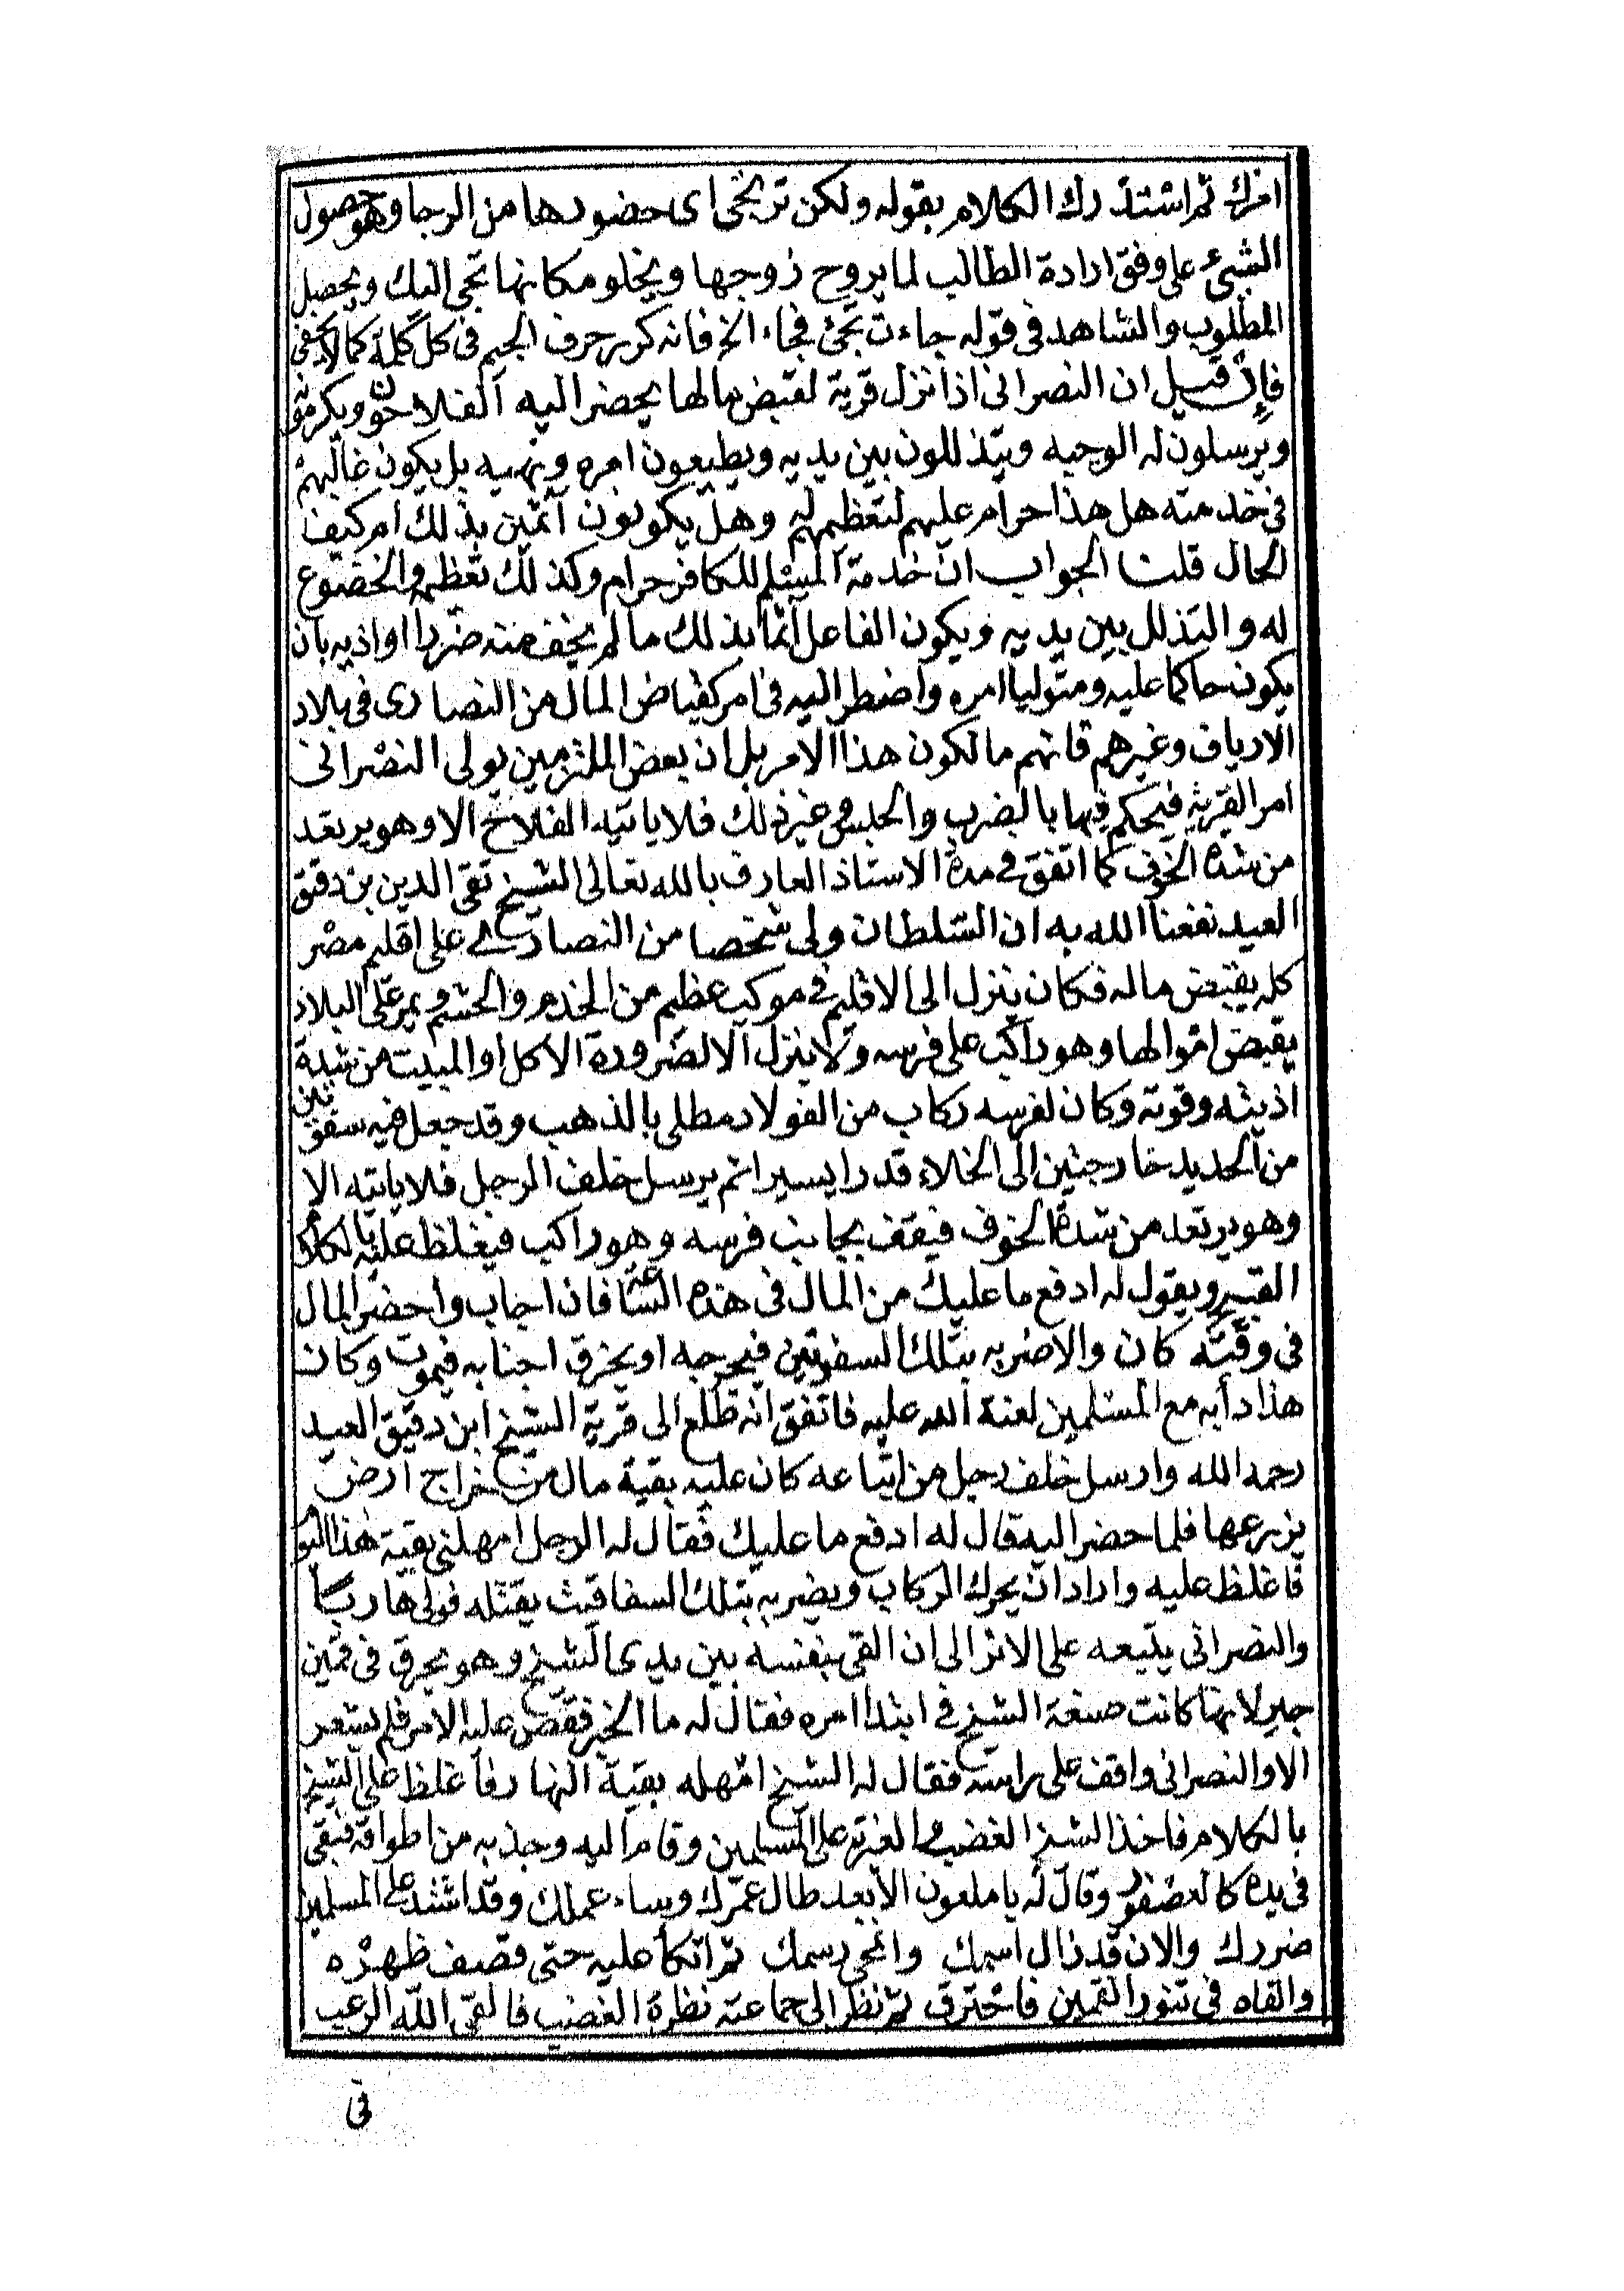 امرك ثم استدرك الكلام بقوله ولكن ترتجى اى حضورها من الرجا وهو حصول
الشئ على وفق ارادة الطالب لما يروح زوجها ويخلو مكانها تجى اليك ويحصل
المطلوب والشاهد فى قوله جاءت تجئ فجاء الخ فانه كرر حرف الجيم فى كل كلمة كما لا يخفى
فان قيل ان النصرانى اذا نزل قرية لقبض مالها يحضر اليه الفلاحون ويكرمونه
ويرسلون له الوجبه ويتذللون بين يديه ويطيعون امره ونهيه بل يكون غالبهم
فى خدمته هل هذا حرام عليهم لتعظيمهم له وهل يكونون آثمين بذلك ام كيف
الحال قلنا الجواب ان خدمة المسلم للكافر حرام وكذلك تعظيمه والخضوع
له والتذلل بين يديه ويكون الفاعل آثما بذلك ما لم يخف منه ضررا او اذيه بان
يكون حاكما عليه ومتوليا امره واضطر اليه فى امر كقباض المال من النصارى فى بلاد
الارياف وغيرهم فانهم مالكون هذا الامر بل ان بعض الملتزمين يولى النصرانى
امر القرية فيحكم فيها بالضرب والحبس وغير ذلك فلا ياتيه الفلاح الا وهو يرتعد
من شدة الخوف كما اتفق فى مدة الاستاذ العارف بالله تعالى الشيخ تقى الدين بن دقيق
العيد نفعنا الله به ان السلطان ولى شخصا من النصارى على اقليم مصر
كله يقبض ماله فكان ينزل الى الاقليم فى موكب عظيم من الخدم والحشم ويمر على البلاد
يقبض اموالها وهو راكب على فرسه ولا ينزل الا لضرورة الاكل او المبيت من شدة
اذيته وقوته وكان لفرسه ركاب من الفولاد مطلى بالذهب وقد جعل فيه سفوتين
من الحديد خارجتين الى الخلاء قدرا يسيرا ثم يرسل خلف الرجل فلا ياتيه الا
وهو يرتعد من شدة الخوف فيقف بجانب فرسه وهو راكب فيغلظ عليه بالكلام
القبيح ويقول له ادفع ما عليك من المال فى هذه الساعة فان اجاب واحضر المال
فى وقته كان والا ضربه بتلك السفوتين فيجرحه او يخرق اجنابه فيموت وكان
هذا دأبه مع المسلمين لعنة الله عليه فاتفق انه طلع الى قرية الشيخ ابن دقيق العيد
رحمه الله وارسل خلف رجل من اتباعه كان عليه بقية مال من خراج ارض
يزرعها فلما حضر اليه قال له ادفع ما عليك فقال له الرجل امهلنى بقية هذا اليوم
فاغلظ عليه واراد ان يحرك الركاب ويضربه بتلك السفافيت يقتله فولى هاربا
والنصرانى يتبعه على الاثر الى ان القى بنفسه بين يدى الشيخ وهو يحرق فى قمين
جير لانها كانت صنعة الشيخ فى ابتدا امره فقال له ما الخبر فقص عليه الامر فلم يشعر
الا والنصرانى واقف على راسه فقال له الشيخ امهله بقية النهار فأغلظ على الشيخ
بالكلام فاخذ الشيخ الغضب والغيرة على المسلمين وقام اليه وجذبه من اطواقه فبقى
فى يده كالعصفور وقال له يا ملعون الابعد طال عمرك وساء عملك وقد اشتد على المسلمين
ضررك والان قد زال اسمك وانمحى رسمك ثم اتكأ عليه حتى قصف ظهره
والقاه فى تنور القمين فاحترق ثم نظر الى جماعته نظرة الغضب فالقى الله الرعب
فى